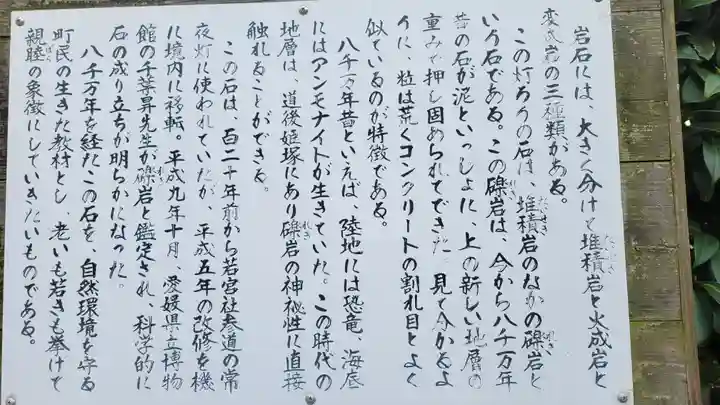 岩石には、大きく分けて堆積岩と火成岩と
変成岩の三種類がある。
この灯ろうの石は、堆積岩のなかの礫岩と
いう石である。この礫岩は、今から八千万年
昔の石が泥といっしょに、上の新しい地層の
重みで押し固められてできた 見て分かるよ
うに、粒は荒くコンクリートの割れ目とよく
似ているのが特徴である。
八千万年昔といえば、陸地には恐竜、海底
にはアンモナイトが生きていた。この時代の
地層は、道後姫塚にあり礫岩の神祕性に直接
触れることができる。
この石は、百二十年前から若宮社参道の常
夜灯に使われていたが 平成五年の改修を機
に境内に移転。平成九年十月 愛媛県立博物
館の千葉昇先生が礫岩と鑑定され、科学的に
石の成り立ちが明らかになった。
八千万年を経たこの石を、自然環境を守る
町民の生きた教材とし 老いも若きも挙げて
親睦の象徴にしていきたいものである。